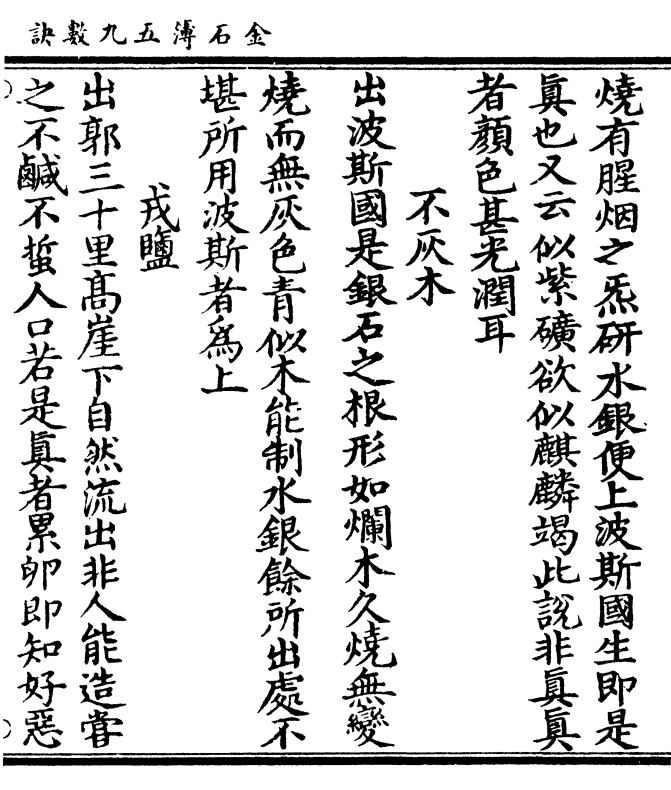 金石薄五九數訣
燒有腥烟之炁研水銀便上波斯國生即是
眞也又云似紫礦欲似麒麟竭此說非眞眞
者顏色甚光潤耳
不灰木
出波斯國是銀石之根形如爛木久燒無變
燒而無灰色青似木能制水銀餘所出處不
堪所用波斯者爲上
戎鹽
出郭三十里高崖下自然流出非人能造嘗
之不鹹不蜇人口若是眞者累卵即知好惡